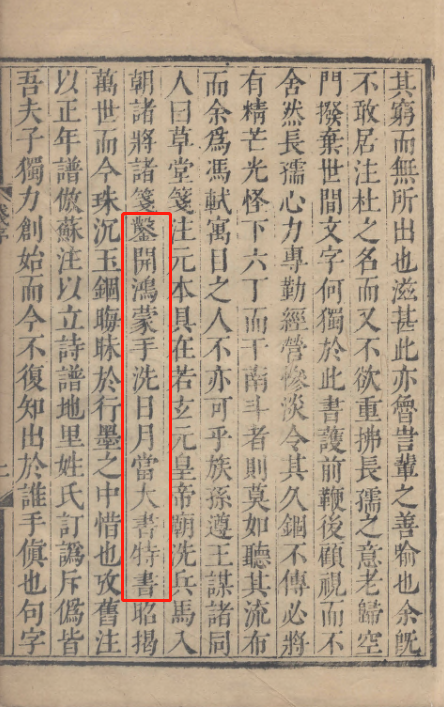 其窮而無所出也滋甚此亦魯訔輩之善喻也余旣
不敢居注杜之名而又不欲重拂長孺之意老歸空
門撥棄世間文字何獨於此書護前鞭後顧視而不
舍然長孺心力專勤經營慘淡令其久錮不傳必將
有精芒光怪下六丁而干南斗者則莫如聽其流布
而余爲馮軾寓目之人不亦可乎族孫遵王謀諸同
人曰草堂箋注元本具在若玄元皇帝廟洗兵馬入
朝諸將諸箋鑿開鴻蒙手洗日月當大書特書昭揭
萬世而今珠沉玉錮晦昧於行墨之中惜也攷舊注
以正年譜倣蘇注以立詩譜地里姓氏訂譌斥僞皆
吾夫子獨力創始而今不復知出於誰手傎也句字